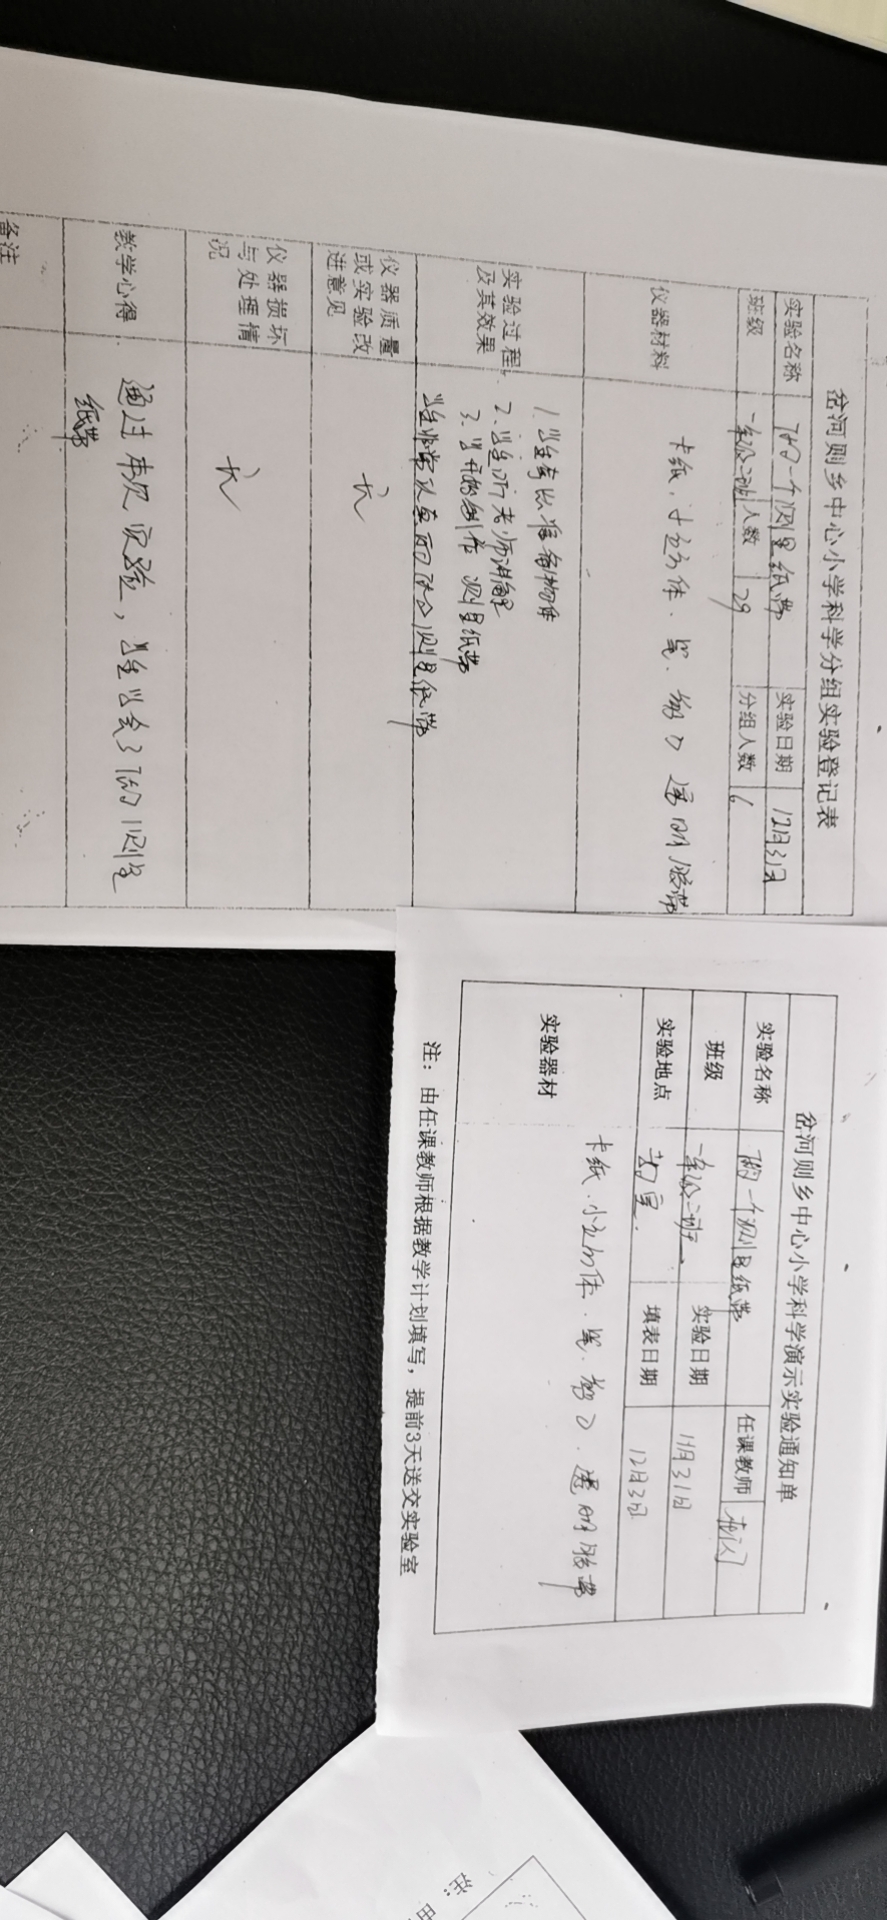 岔河则乡中心小学科学分组实验登记表
实验名称 做一个测量纸带 实验日期 12月31日
班级 一年级二班 人数 29 分组人数 6
仪器材料 卡纸、小立方体、笔、剪刀 透明胶带
实验过程及其效果
1.学生考虑准备物体
2.学生听老师讲解
3.学开始制作 测量纸带
学生非常认真
测量纸带
仪器质量或实验改进意见 无
仪器损坏与处理情况 无
教学心得 通过本次实验，学生学会了做测量
纸带
备注
岔河则乡中心小学科学演示实验通知单
实验名称 做一个测量纸带 任课教师
班级 一年级二班 实验日期 11月31日
实验地点 填表日期 12月3日
实验器材 卡纸、小立方体、笔、剪刀、透明胶带
注：由任课教师根据教学计划填写，提前3天送交实验室
注：由